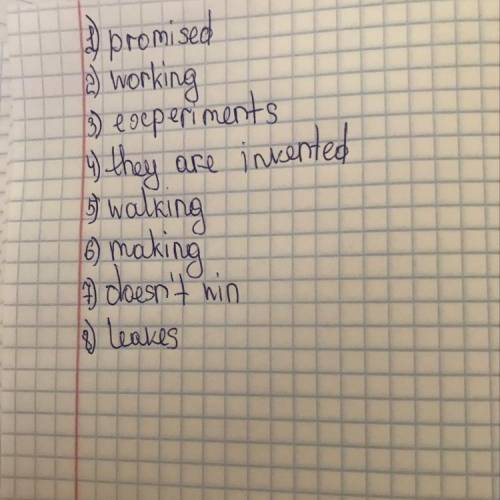 1) promised
2) working
3) experiments
4) they are invented
5) walking
6) making
7) doesn't win
8) leakes